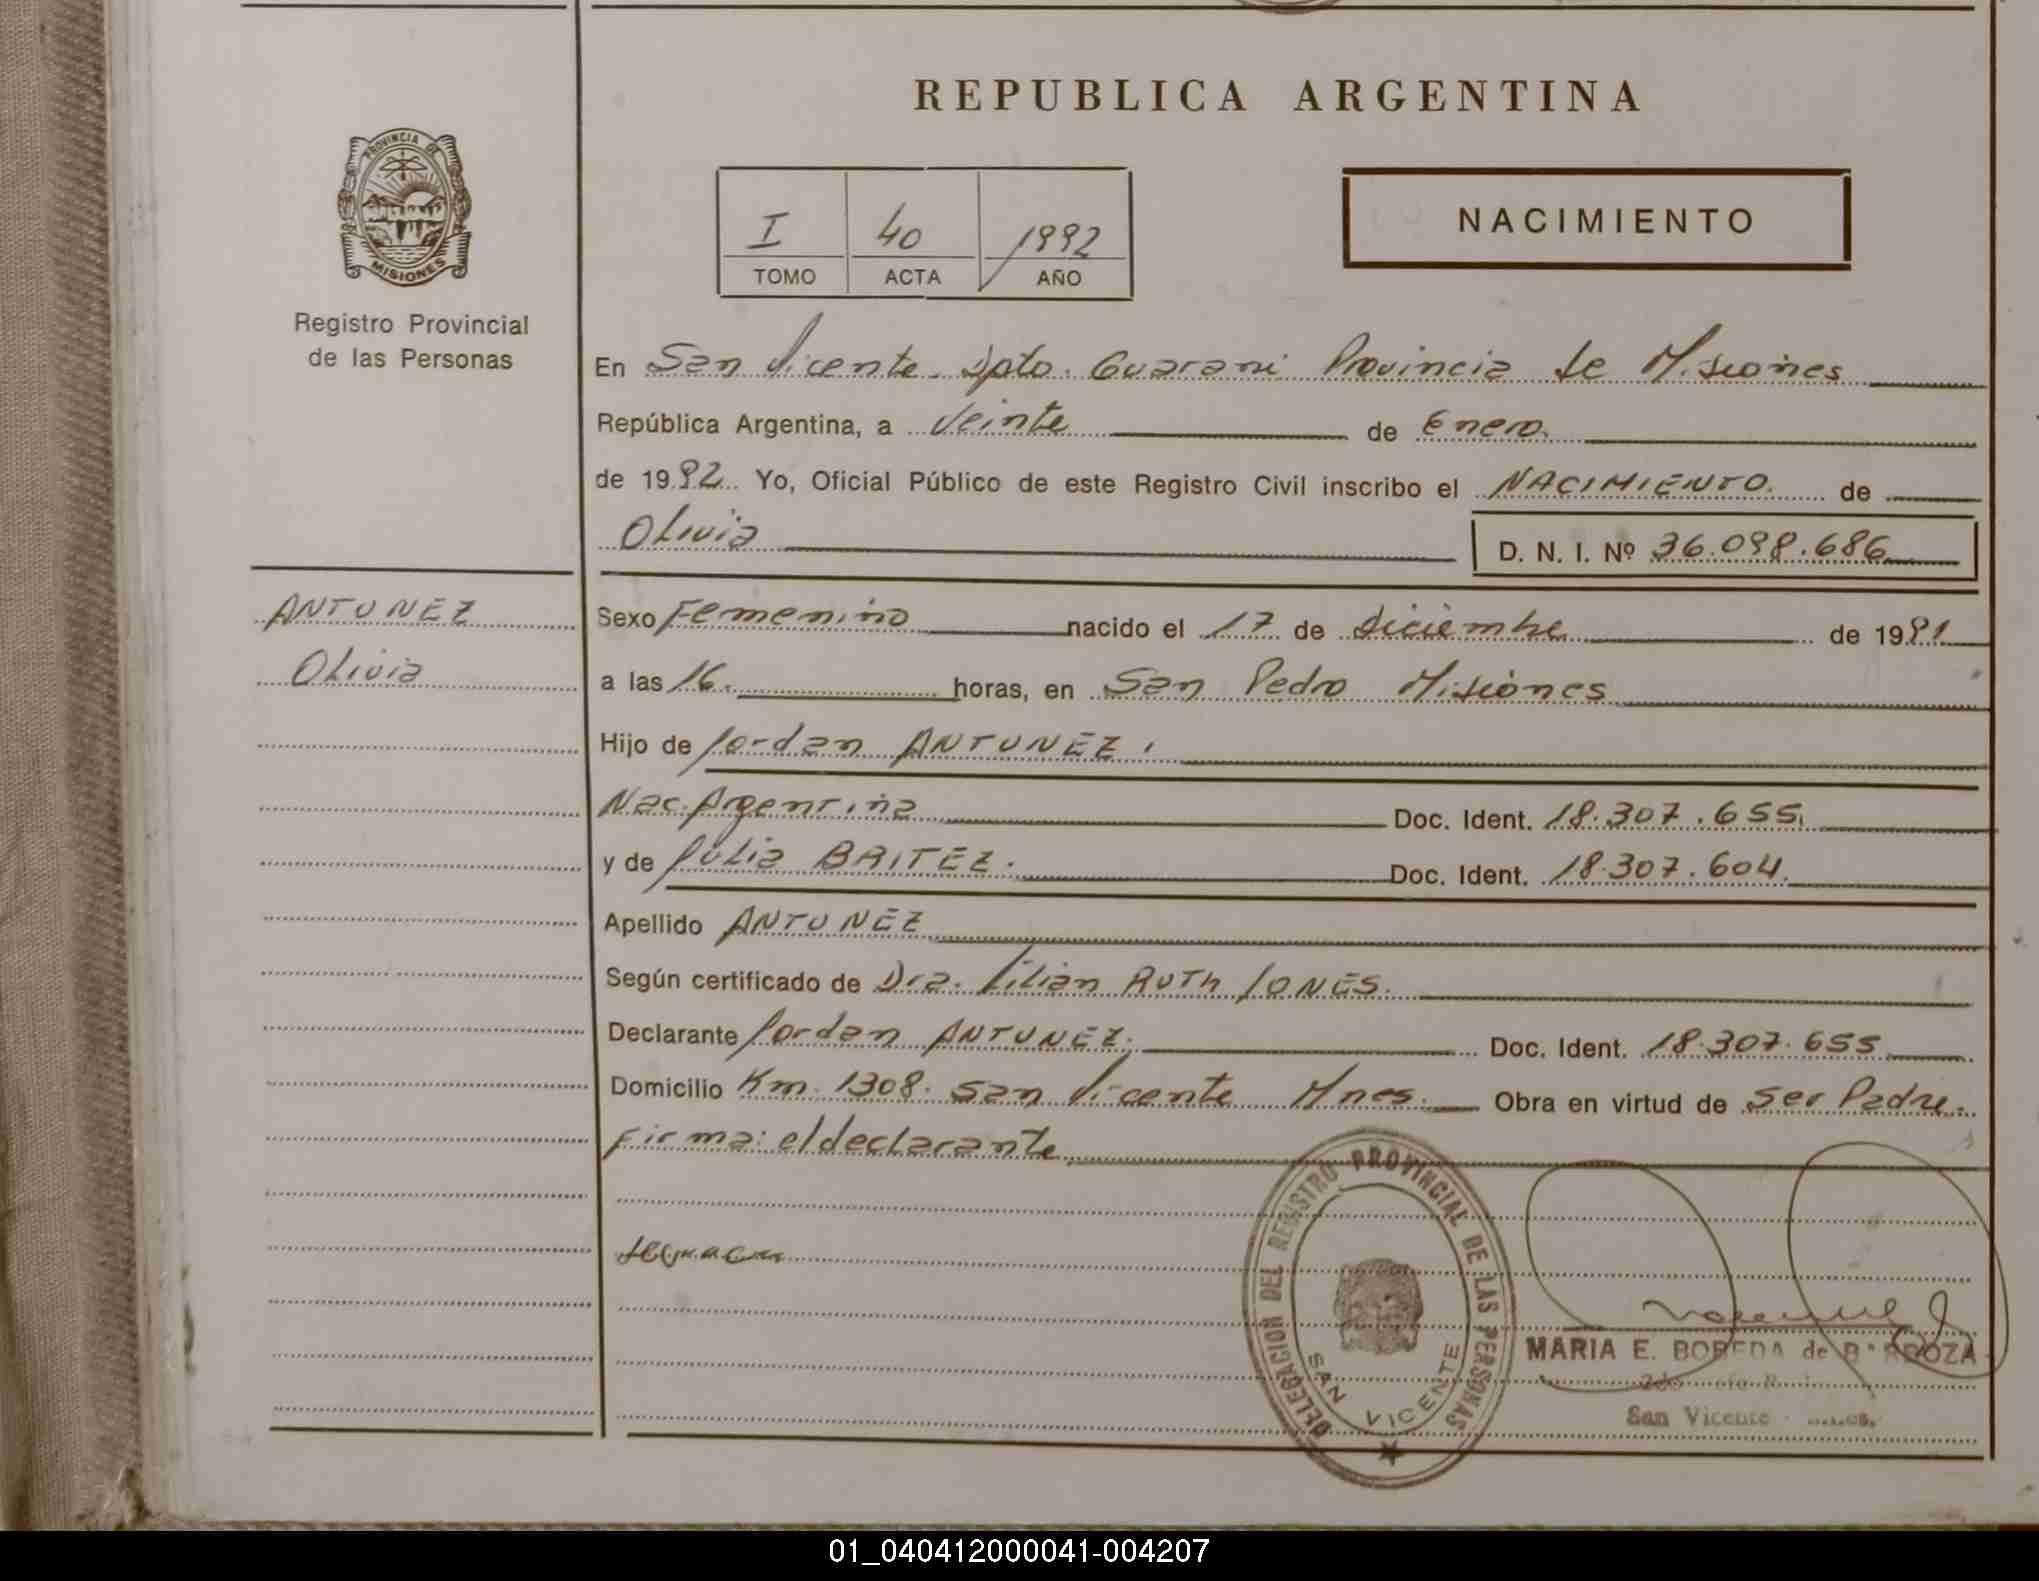 REPUBLICA ARGENTINA
PROVINCIA DE
MISIONES
Registro Provincial
de las Personas
I 40 1992
TOMO ACTA AÑO
NACIMIENTO
En San Vicente. Dpto. Guarani Provincia de Misiones
República Argentina, a Veinte de Enero.
de 1992. Yo, Oficial Público de este Registro Civil inscribo el NACIMIENTO. de
Olivia D. N. I. Nº 36.098.686
ANTUNEZ
Olivia
Sexo Femenino nacido el 17 de diciembre de 1991
a las 16. horas, en San Pedro Misiones
Hijo de Jordan ANTUNEZ.
Nac. Argentina Doc. Ident. 18.307.655.
y de Julia BAITEZ. Doc. Ident. 18.307.604.
Apellido ANTUNEZ
Según certificado de Dra. Lilian RUTH JONES.
Declarante Jordan ANTUNEZ. Doc. Ident. 18.307.655
Domicilio Km. 1308. San Vicente Mnes. Obra en virtud de ser Padre.
Firma: el declarante
DELEGACION DEL REGISTRO PROVINCIAL DE LAS PERSONAS
SAN VICENTE
MARIA E. BOBEDA de
San Vicente
01_040412000041-004207